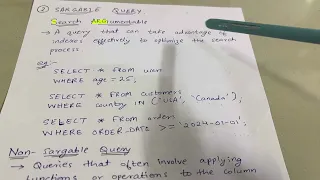 ② SARGABLE QUERY
Search ARGumentable
→ A query that can take advantage of
indexes effectively to optimize the search
process
eg:-
SELECT * FROM users
WHERE age = 25;
SELECT * FROM customers
WHERE country IN ('USA', 'Canada');
SELECT * FROM orders
WHERE ORDER_DATE >= '2024-01-01';
Non-Sargable Query
→ Queries that often involve applying
functions or operations to the column